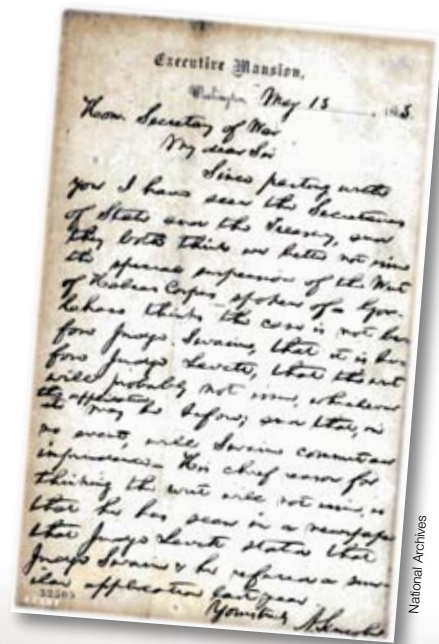 Executive Mansion,
Washington, May 13, 1863.
Hon. Secretary of War
My dear Sir
Since parting with
you I have seen the Secretaries
of State and the Treasury, and
they both think we better not issue
the special suspension of the Writ
of Habeas Corpus spoken of. Gov.
Chase thinks the case is not be-
fore Judge Swaine, that it is be-
fore Judge Levett, that the writ
will probably not issue, whichever
the application
it may be before; and that, in
no event, will Swaine commit an
imprudence. His chief reason for
thinking the writ will not issue, is
that he has seen in a newspaper
that Judge Levett stated that
Judge Swaine & he refused a sim-
ilar application last year.
Yours truly A. Lincoln
National Archives